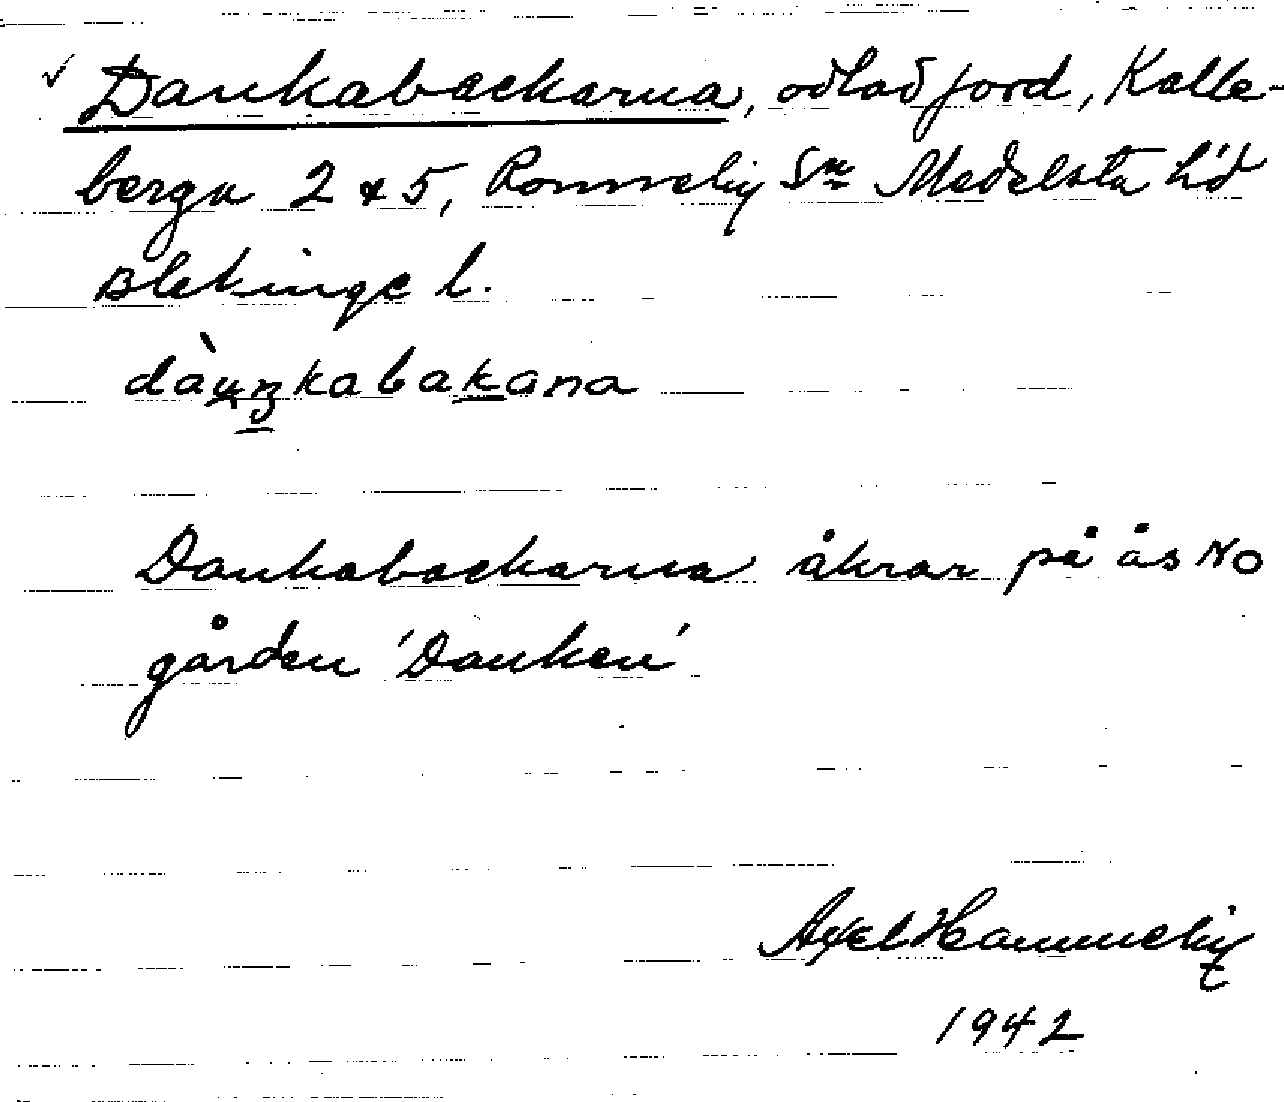 ✓ Dankabackarna, odlad jord, Kalle-
berga 2 & 5, Ronneby Sn Medelsta hd
Blekinge l.
Dankabackarna åkrar på ås NO
gården 'Danken'
Axel Hammeby
1942